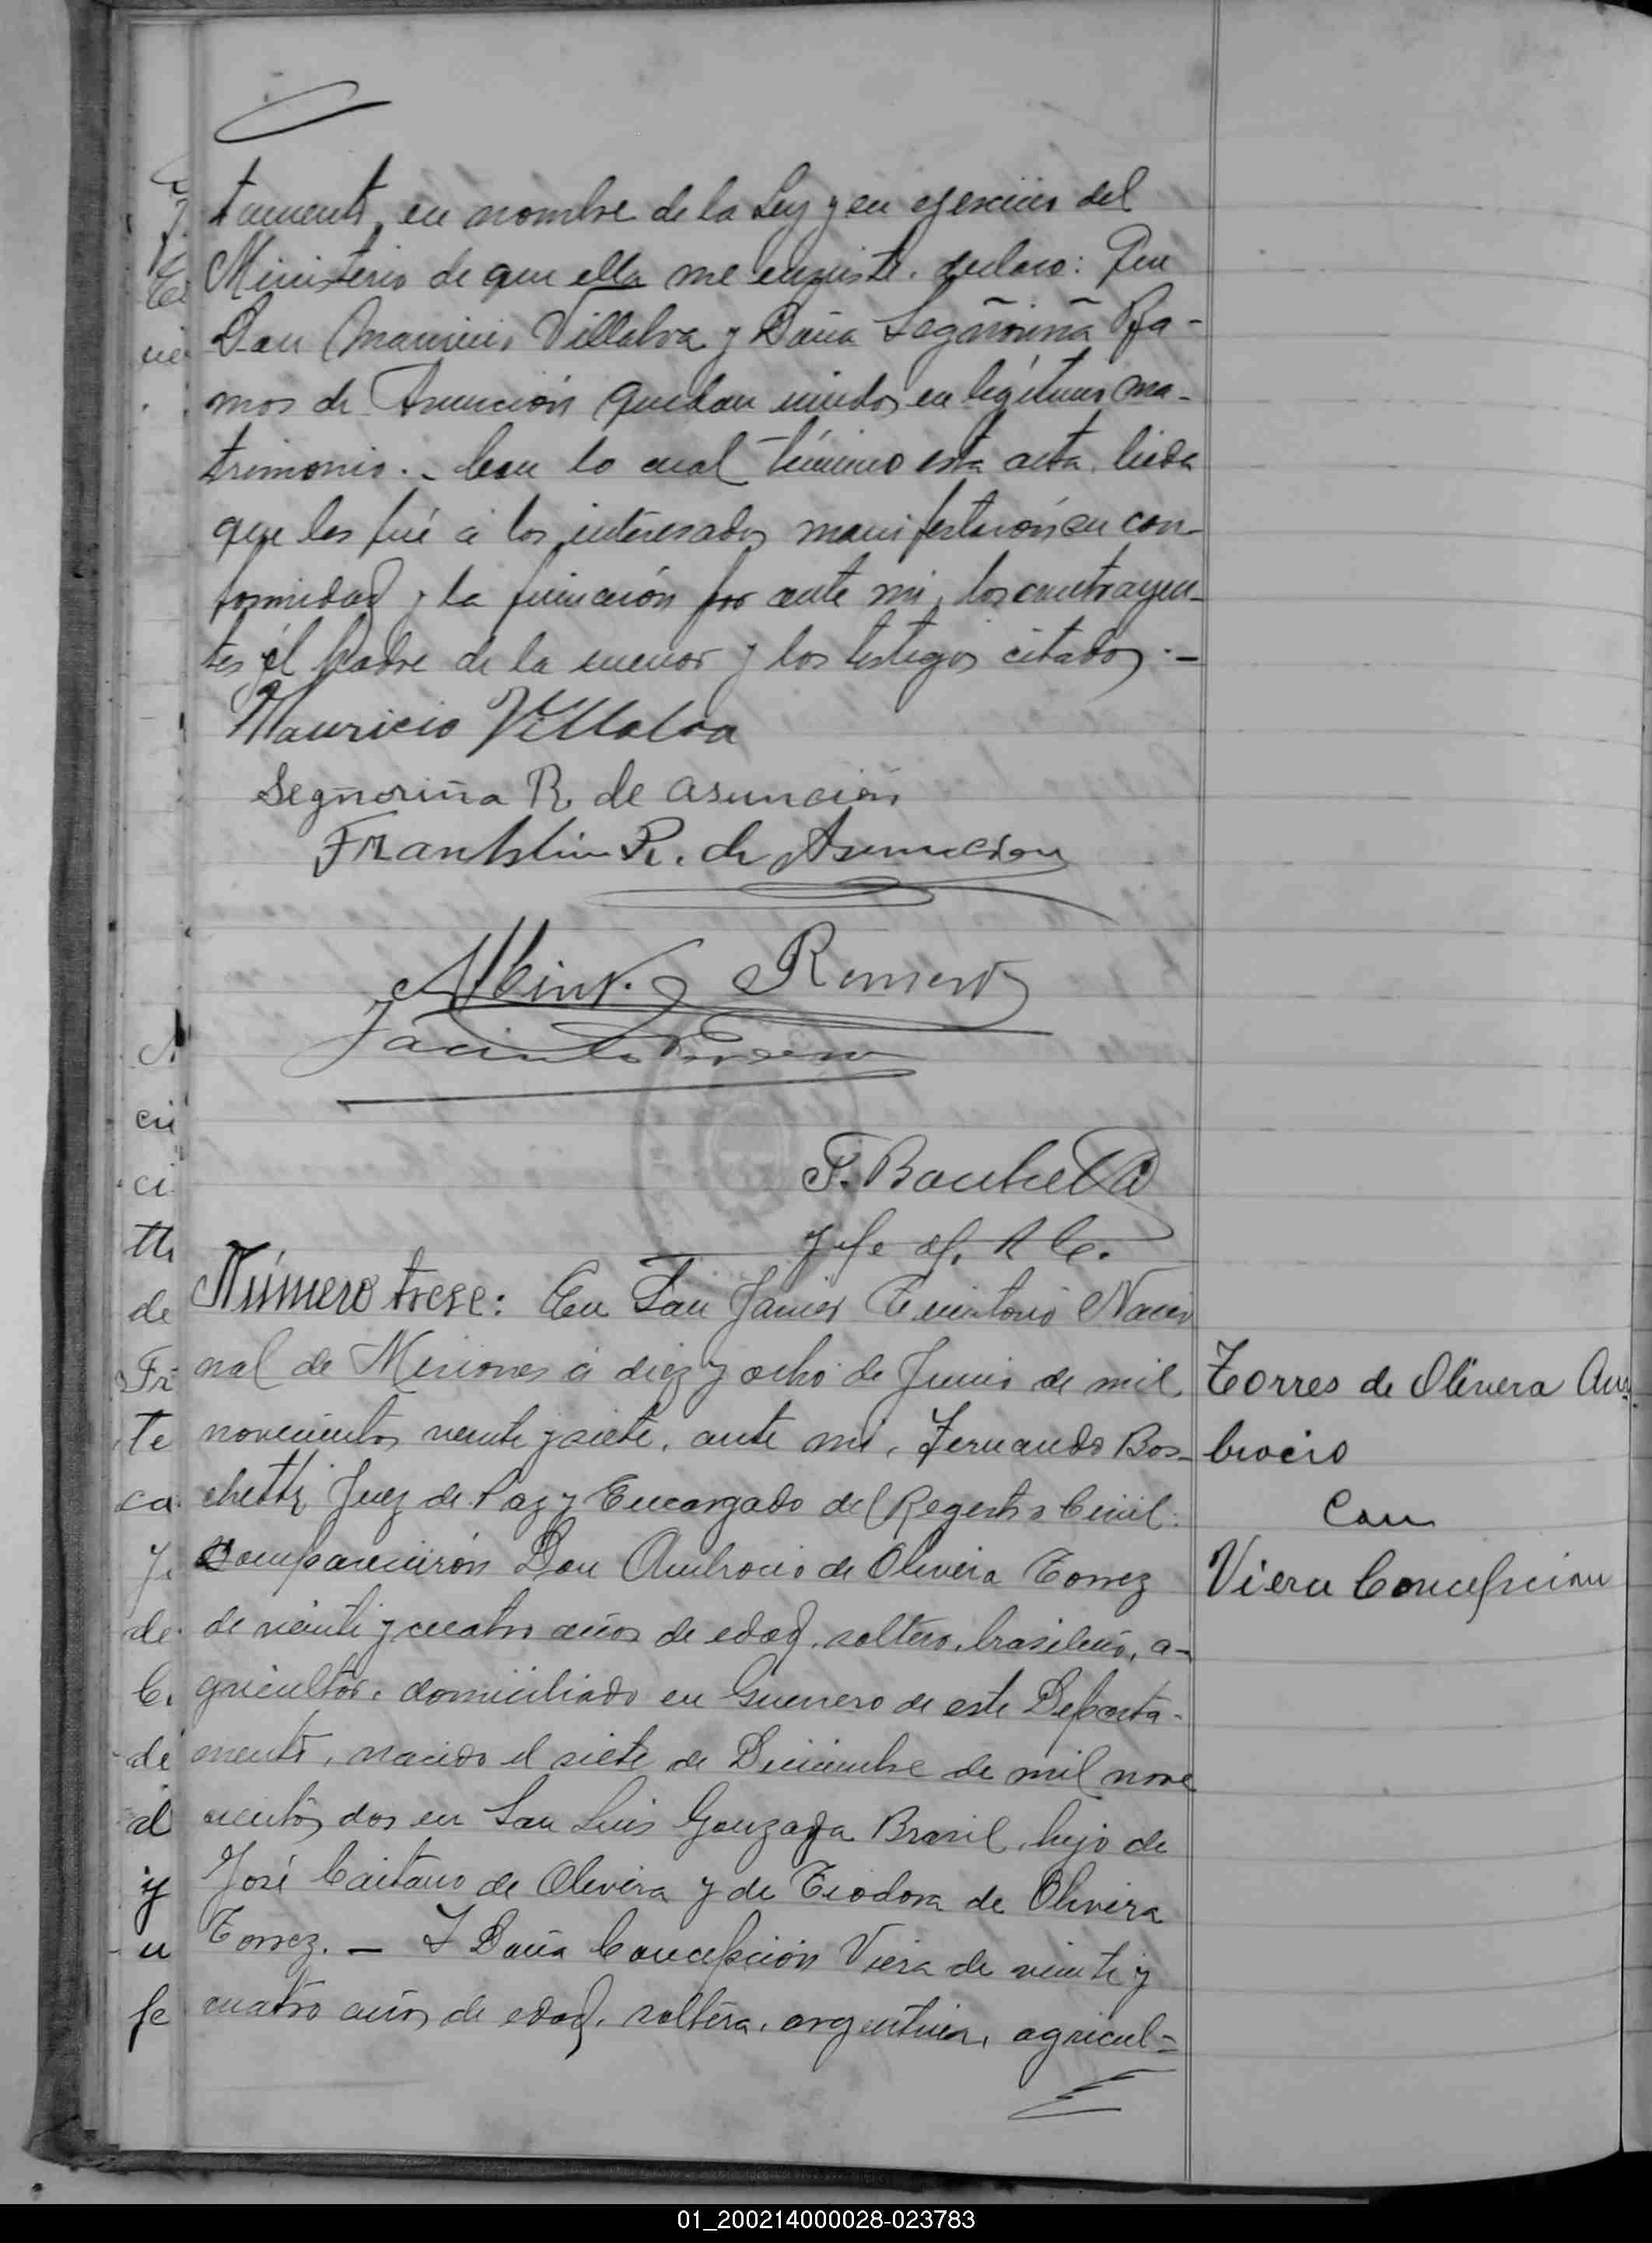 tamente, en nombre de la Ley y en ejercicio del
Ministerio de que ella me enviste. declaro: Que
Don Mauricio Villalva y Doña Segñoriña Ra-
mos de Asunción quedan unidos en legítimo ma-
trimonio. - Con lo cual término esta acta. lieda
que les fué á los interesados manifestarón su con-
formidad y la firmarón por ante mi, los contrayen-
tes, él Padre de la menor y los testigos citados. -
Mauricio Villalva
Segñoriña R. de asunción
Franklin R. de Asuncion
Romero
Jacinto
F. Boschetti
Jefe of. R C.
Número trese: En San Javier Territorio Nacio
nal de Misiones á diez y ocho de Junio de mil
novecientos veinte y siete, ante mi, Fernando Bos-
chetti, Juez de Paz y Encargado del Registro Civil:
Comparecierón Don Ambrocio de Olivera Torrez
de veinte y cuatro años de edad, soltero, brasileño, a-
gricultor, domiciliado en Guerrero de este Departa-
mento, nacido el siete de Diciembre de mil nove
cientos dos en San Luis Gonzaga Brasil, hijo de
José Caitano de Olivera y de Teodora de Olivera
Torrez. - Y Doña Concepción Viera de veinte y
cuatro años de edad, soltera, argentina, agricul-
Torres de Olivera Am
brocio
Con
Viera Concepcion
01_200214000028-023783